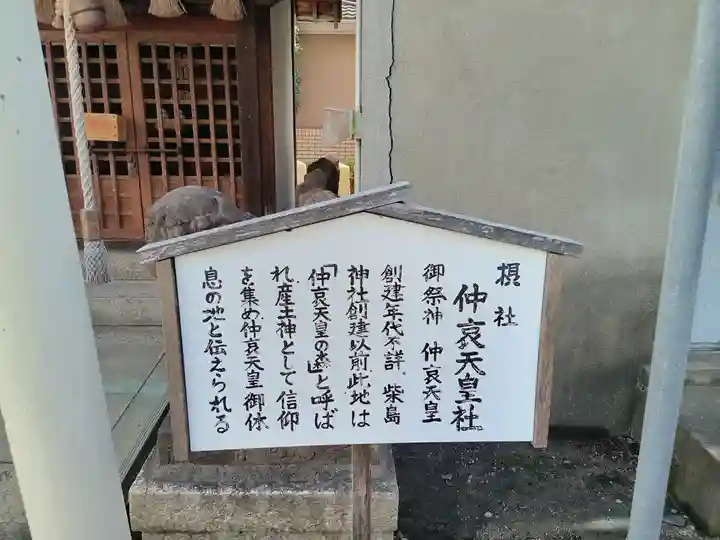 摂社
仲哀天皇社
御祭神　仲哀天皇
創建年代不詳、柴島
神社創建以前、此地は
「仲哀天皇の森」と呼ば
れ、産土神として信仰
を集め、仲哀天皇御休
息の地と伝えられる